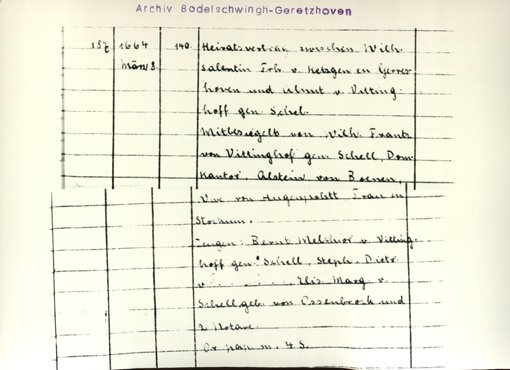 Archiv Bodelschwingh-Geretzhoven
137. 1664 140. Heiratsvertrag zwischen Wilh.
März 8. Valentin Frh v. Ketzgen en Gerres-
hoven und v. Vitting-
hoff gen Schel.
Mitbesiegelt von Wilh. Frantz
von Vittinghof gen. Schell, Dom-
Kantor, von Boenen,
von Frau in
Stockum.
Zeugen: Bernt Melchior v. Vitting-
hoff gen. Schell, Steph. Dietr.
v. . . . . . . Elis. Marg v.
Schell, geb. von Ossenbroek und
2 Notare.
Or. pap. m. 4 S.